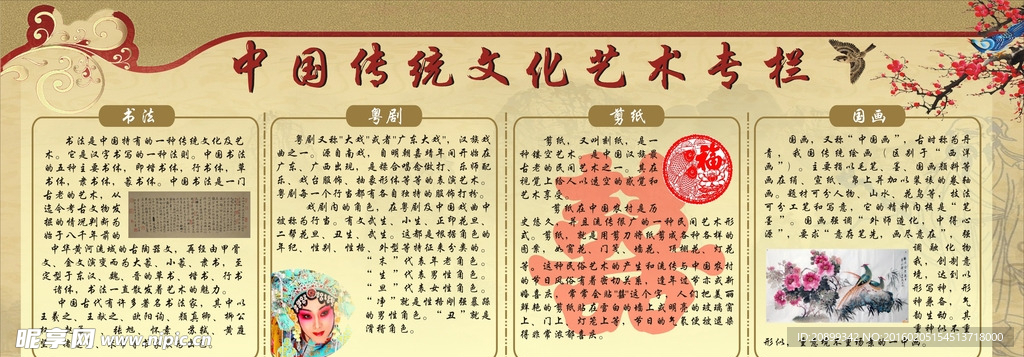 中国传统文化艺术专栏
书法
书法是中国特有的一种传统文化及艺
术。它是汉字书写的一种法则。中国书法
的五种主要书体,即楷书体,行书体,草
书体,隶书体,篆书体。中国书法是一门
古老的艺术,从
迄今考古文物发
掘的情况判断为
始于八千年前的
中华黄河流域的古陶器文,再经由甲骨
文、金文演变而为大篆、小篆、隶书,至
定型于东汉、魏、晋的草书、楷书、行书
诸体,书法一直散发着艺术的魅力。
中国古代有许多著名书法家,其中以
王羲之、王献之、欧阳询、颜真卿、柳公
张旭、怀素、苏轼、黄庭
粤剧
粤剧又称"大戏"或者"广东大戏",汉族戏
曲之一。源自南戏,自明朝嘉靖年间开始在
广东、广西出现,是揉合唱念做打、乐师配
乐、戏台服饰、抽象形体等等的表演艺术。
粤剧每一个行当都有各自独特的服饰打扮。
戏剧内的角色,在粤剧及中国戏曲中
被称为行当。有文武生、小生、正印花旦、
二帮花旦、丑生、武生。这都是根据角色的
年纪、性别、性格、外型等特征来分类的。
"末"代表年老角色。
"生"代表男性角色。
"旦"代表女性角色。
"净"就是性格刚烈暴躁
的男性角色。"丑"就是
滑稽角色。
剪纸
剪纸,又叫刻纸,是一
种镂空艺术,是中国汉族最
古老的民间艺术之一。其在
视觉上给人以透空的感觉和
艺术享受。
剪纸在中国农村是历
史悠久,并且流传很广的一种民间艺术形
式。剪纸,就是用剪刀将纸剪成各种各样的
图案,如窗花、门笺、墙花、顶棚花、灯花
等。这种民俗艺术的产生和流传与中国农村
的节日风俗有着密切关系,逢年过节亦或新
婚喜庆,常常会贴"囍"这个字,人们把美丽
鲜艳的剪纸贴在雪白的墙上或明亮的玻璃窗
上、门上、灯笼上等,节日的气氛便被渲染
得非常浓郁喜庆。
福
国画
国画,又称"中国画",古时称为丹
青,我国传统绘画(区别于"西洋
画")。主要指以毛笔、墨、国画颜料等
画在绢、宣纸、帛上并加以装裱的卷轴
画。题材可分人物、山水、花鸟等,技法
可分工笔和写意,它的精神内核是"笔
墨"。国画强调"外师造化,中得心
源",要求"意存笔先,画尽意在",强
调融化物
我,创制意
境,达到以
形写神,形
神兼备,气
韵生动。
昵享网 www.nipic.cn
ID:20899342 NO:20160305154513718000